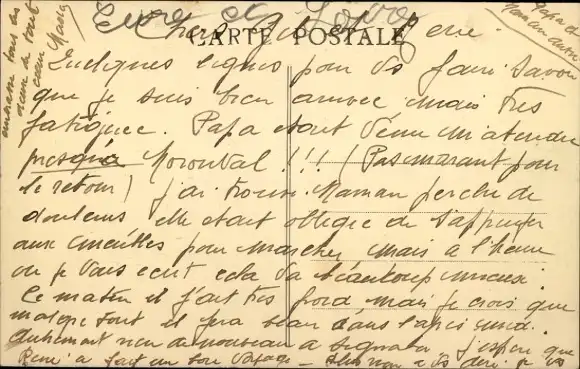 Eure et Loire
Chers
CARTE POSTALE
Papa et
Maman
Quelques lignes pour vs faire savoir
que je suis bien arrivée, mais très
fatiguée. Papa etait venu m'atendre
presqu'a Moronval !!! (Pas marant pour
le retour) j'ai trouvé Maman perclu de
douleurs elle etait obligée de s'appuyer
aux meubles pour marcher, mais a l'heure
ou je vous ecrit cela va beaucoup mieux.
Ce matin il fait très froid, mais je crois que
malgré tout il fera beau dans l'apres midi.
Autrement rien de nouveau a signaler j'espere que
René a fait un bon voyage
embrasse tous
de tout
cœur